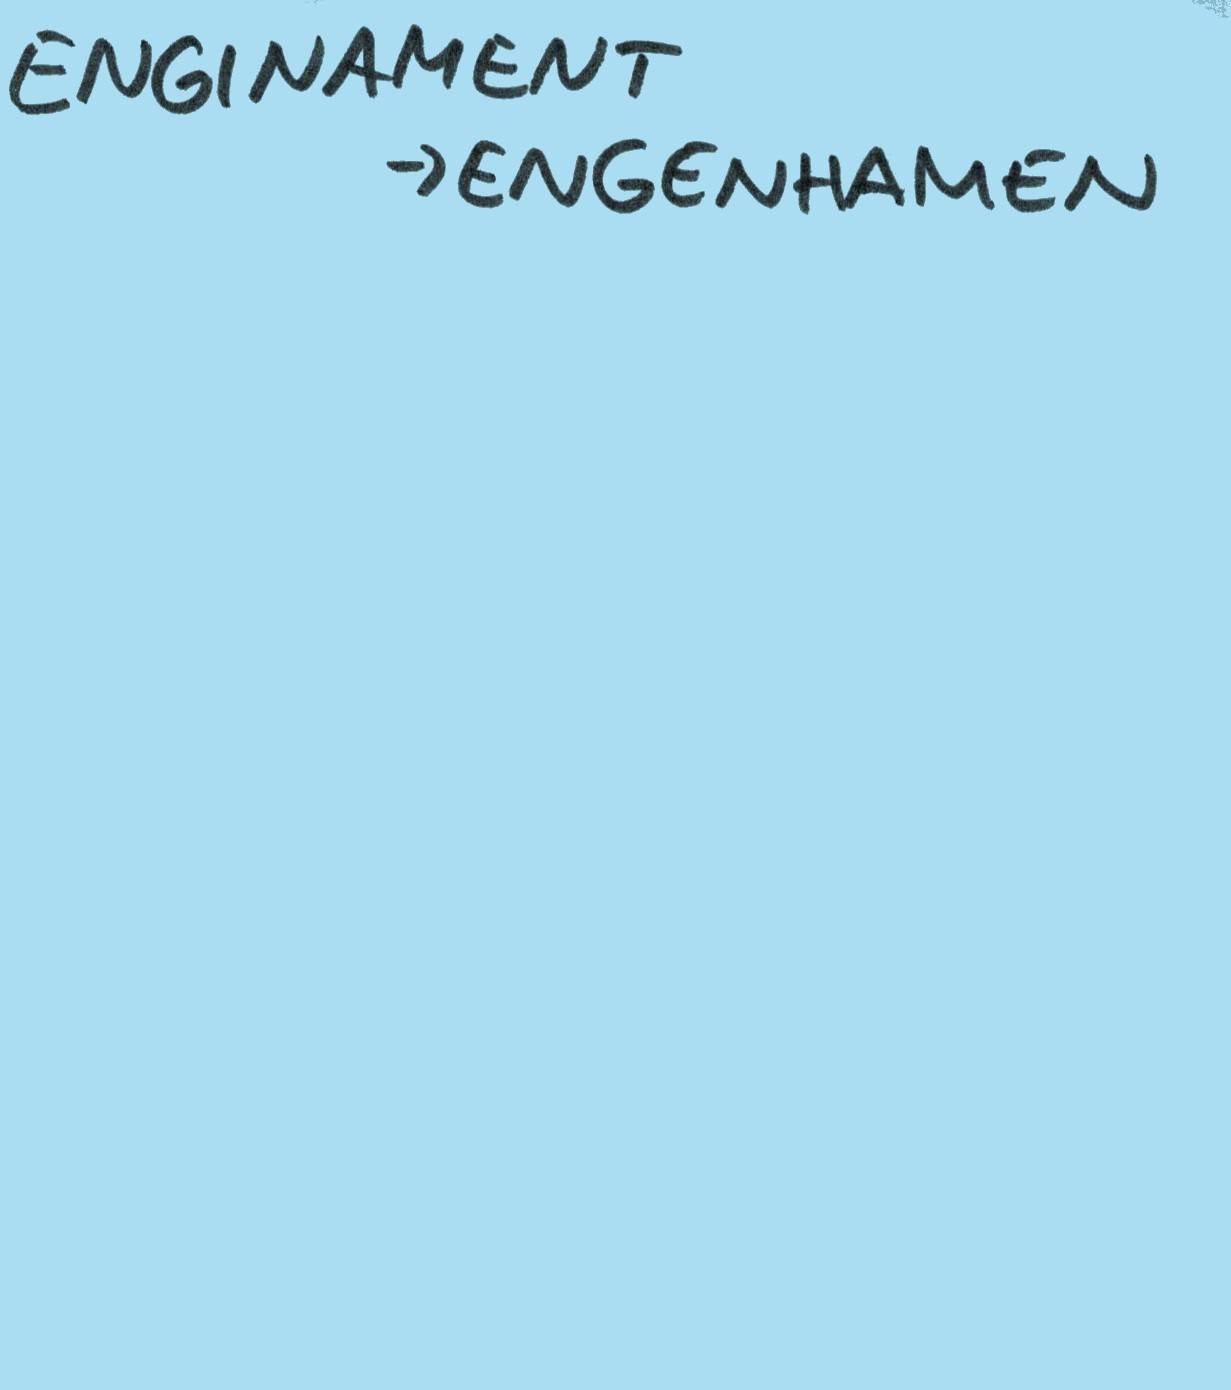 ENGINAMENT
→ENGENHAMEN